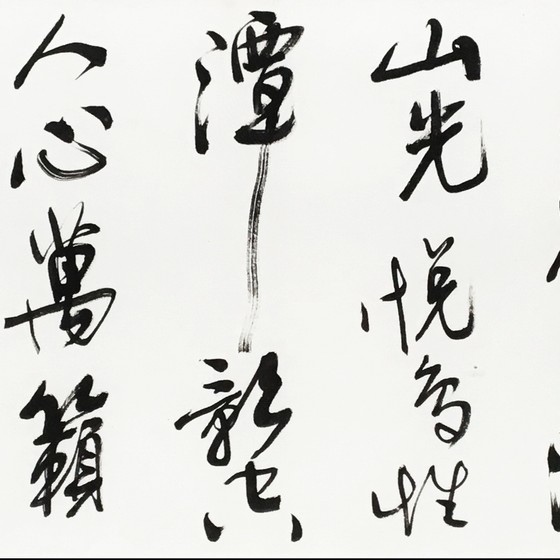 山光悦鳥性
潭影空
人心萬籟